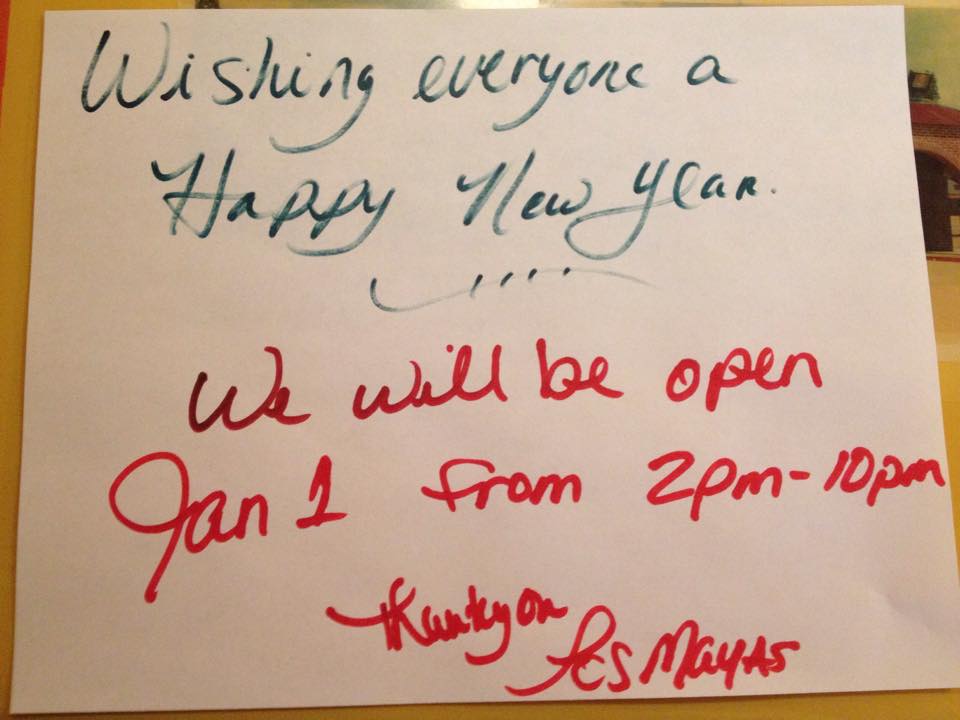 Wishing everyone a
Happy New Year.
We will be open
Jan 1 from 2pm-10pm
thankyou
Les Mayas